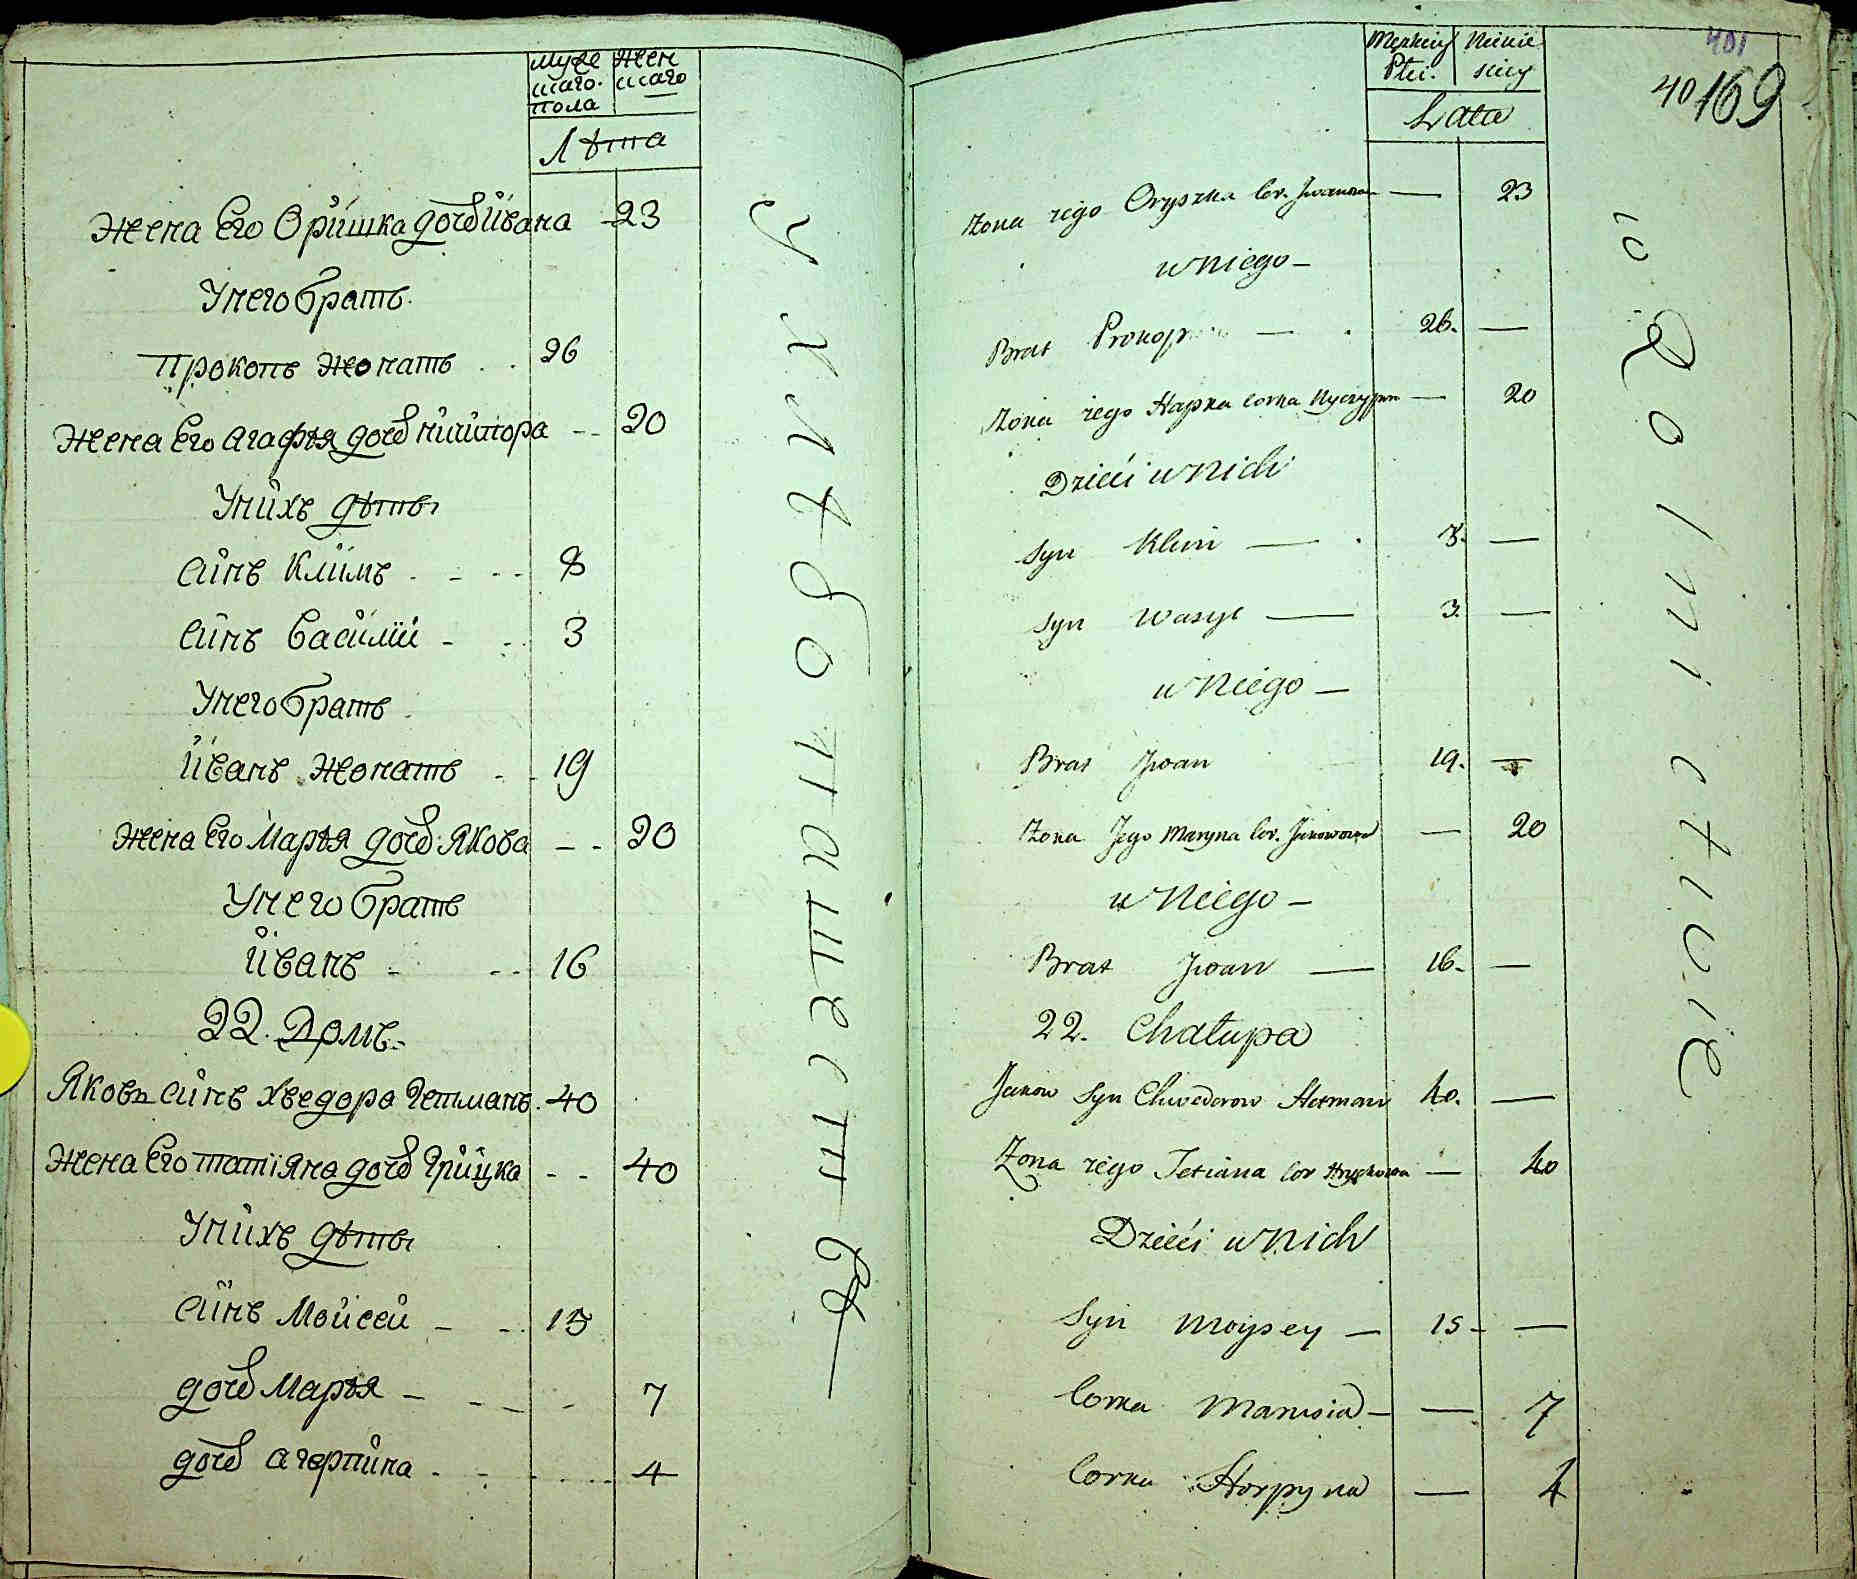 Муже Жен
скаго скаго
пола
Лѣта
Жена Его Оришка дочь Ивана 23
У него братъ
Прокопъ жонатъ 26
Жена Его Агафья дочь Ничипора 20
У нихъ дѣти
Синъ Климъ 8
Синъ Василий 3
У него братъ
Иванъ жонатъ 19
Жена Его Марья дочь Якова 20
У него братъ
Иванъ 16
22. Домъ
Яковъ синъ Хведора Гетманъ 40
Жена Его Татіяна дочь Грицка 40
У нихъ дѣти
Синъ Моисей 15
дочь Марья 7
дочь Агерпина 4
У Х Л Ѣ б о п а ш е с т в
Męzkiey Niewie
Płci skiey
401
40 169
Lata
Zona iego Oryszka Cor. Iwanowa — 23
u Niego —
Brat Prokop — 26. —
Zona iego Hapka Corka Nyczypora — 20
Dzieći u Nich
Syn Klim — 8. —
Syn Wasyl — 3. —
u Niego —
Brat Jwan 19. —
Zona Jego Maryna Cor. Jakowowa — 20
u Niego —
Brat Jwan — 16. —
22. Chałupa
Jakow Syn Chwedorow Hetman 40. —
Zona iego Tetiana Cor Hryckowa — 40
Dzieći u Nich
Syn Moysey — 15 —
Corka Marusia — — 7
Corka Horpyna — 4
w R o l n i c t w i e